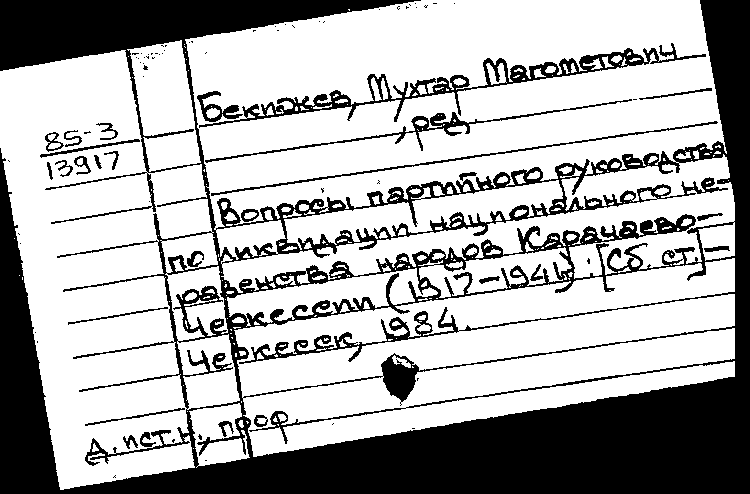 Бекижев, Мухтар Магометович
, ред.
85-3
13917
Вопросы партийного руководства
по ликвидации национального не-
равенства народов Карачаево-
Черкесепи (1917-1941) : [Сб. ст.]-
Черкесск, 1984.
д. ист. н., проф.